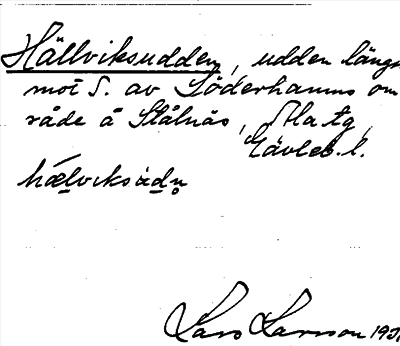 Hällviksudden, udden längst
mot S. av Söderhamns om
råde å Stålnäs, Ala tg,
Gävleb. l.
hælviksùdn̥
Lars Larsson 193